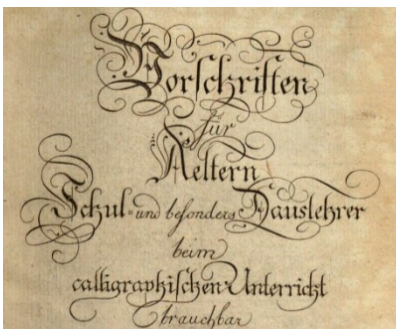 Vorschriften
für
Aeltern
Schul- und besonders Hauslehrer
beim
calligraphischen Unterricht
brauchbar